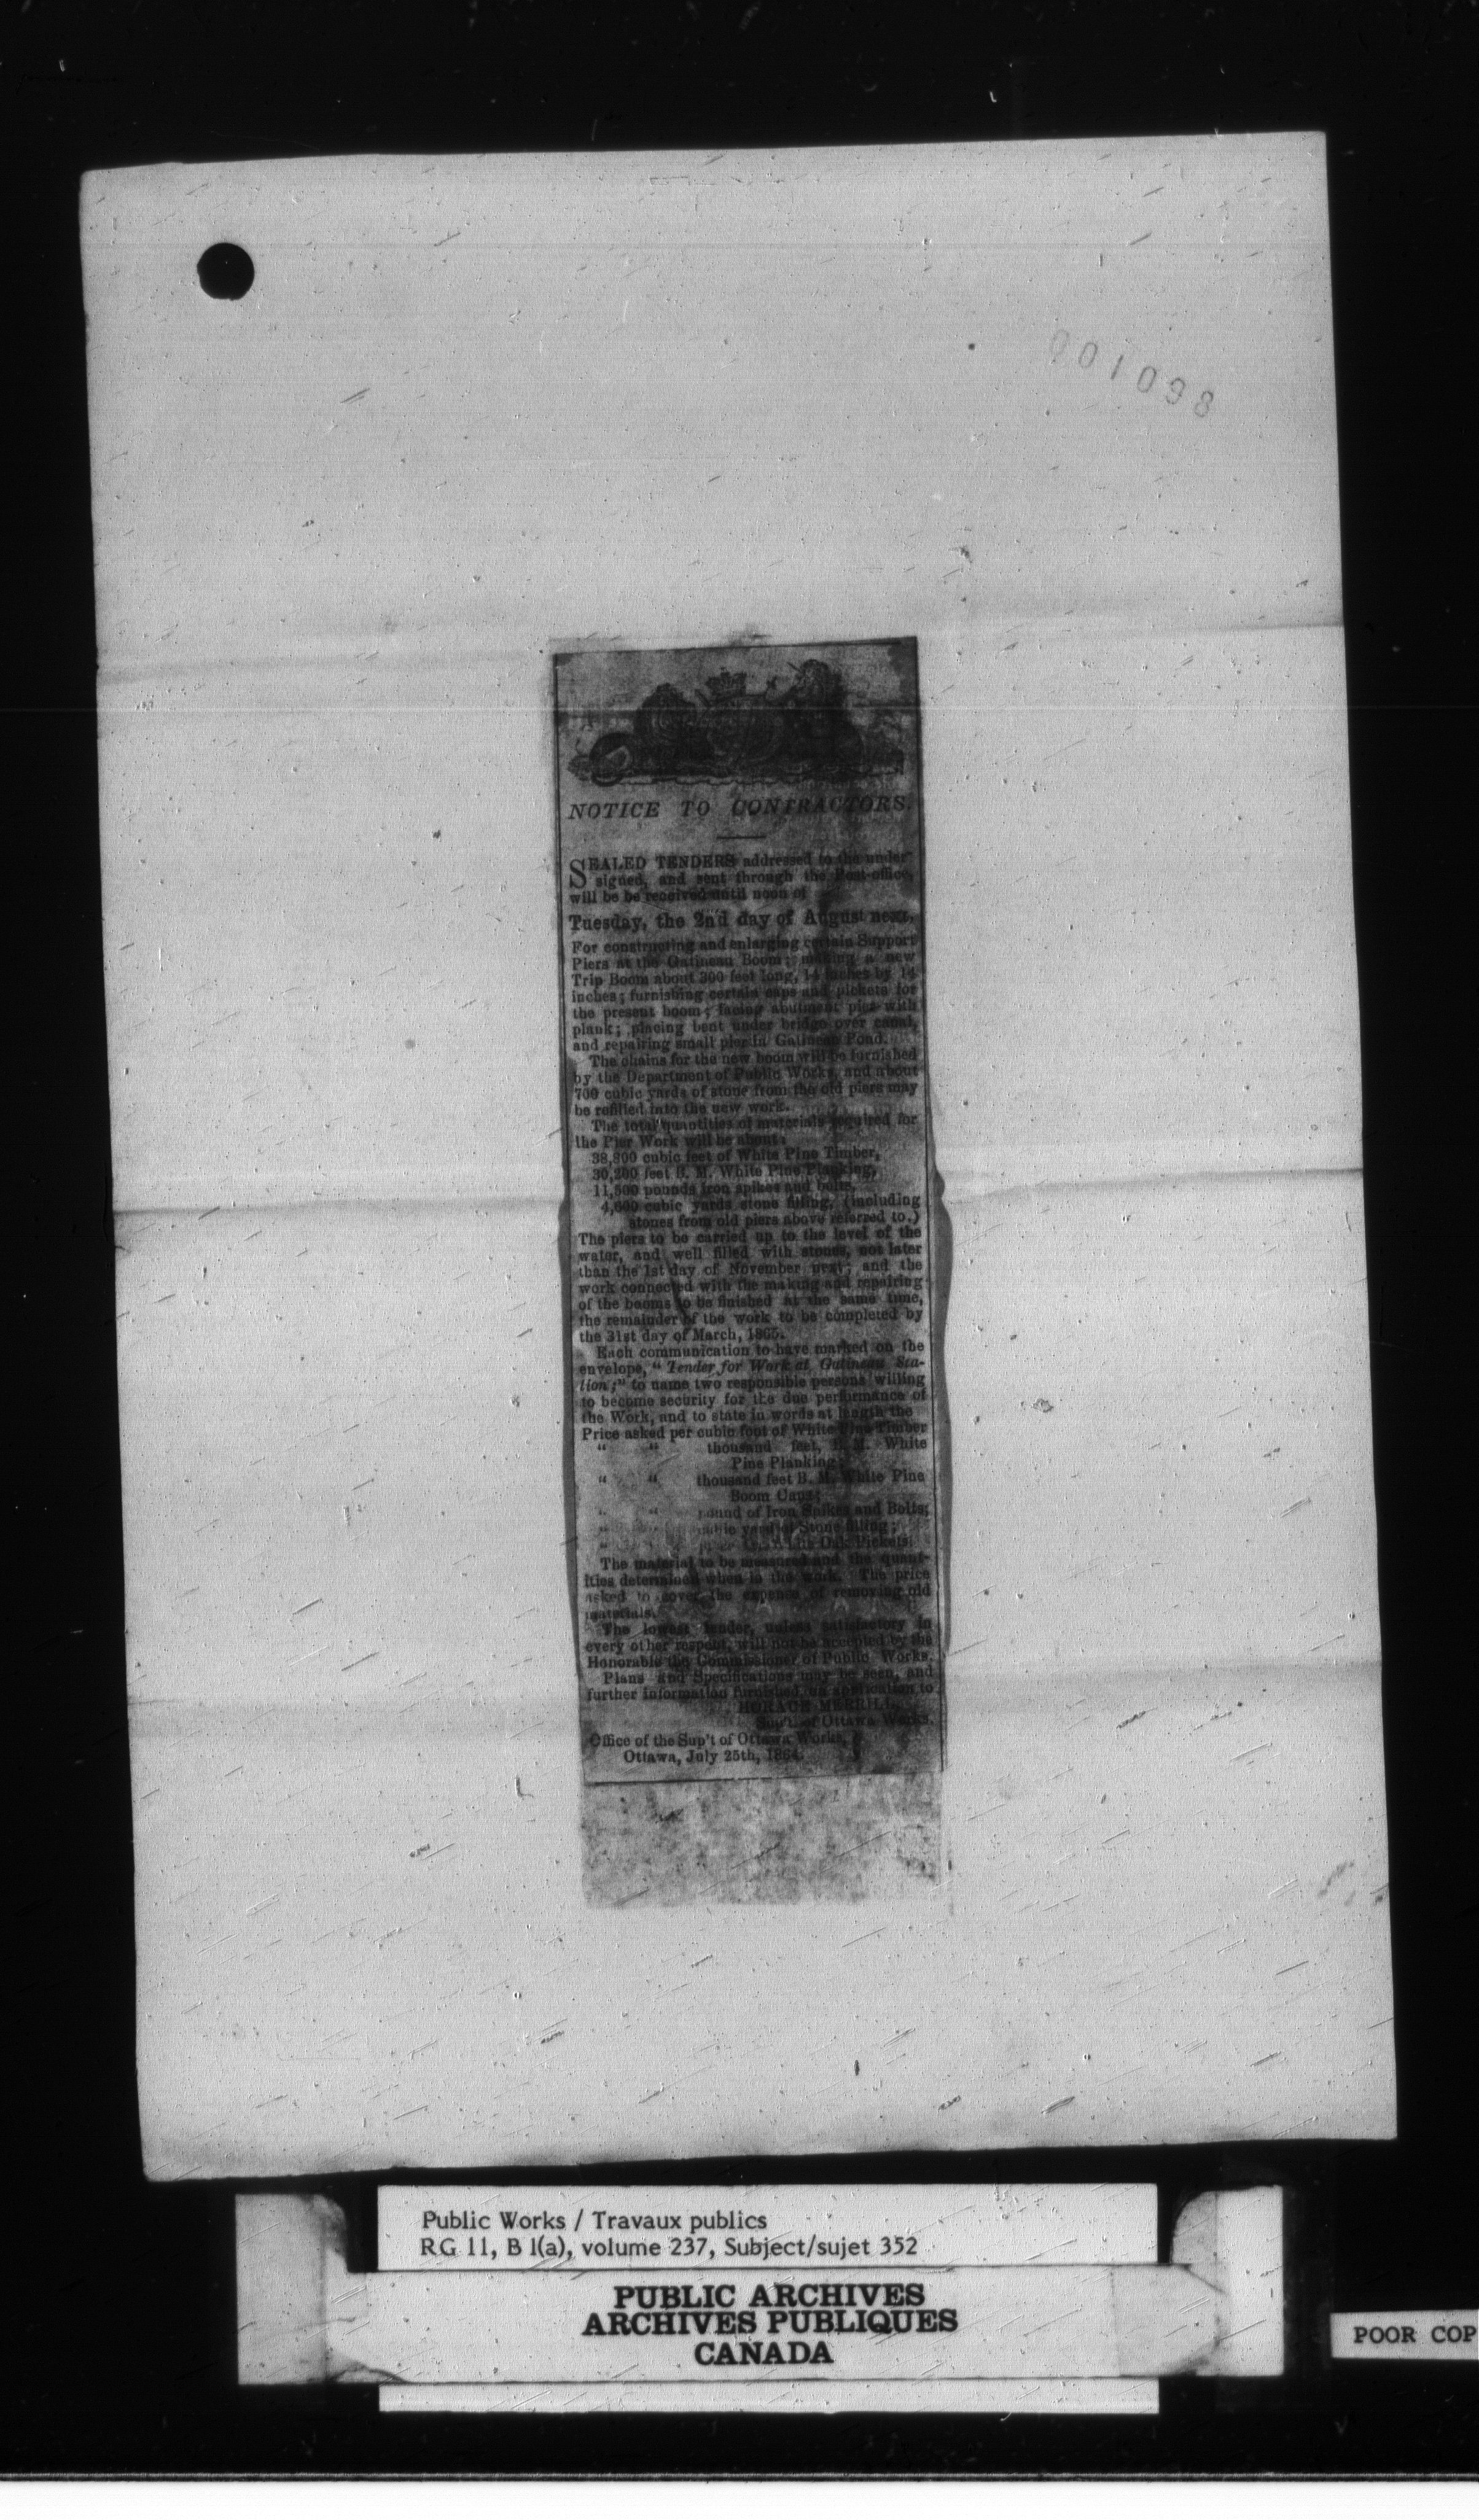 001098
NOTICE TO CONTRACTORS.
SEALED TENDERS addressed to the under-
signed, and sent through the Post-office,
will be be received until noon of
Tuesday, the 2nd day of August next,
For constructing and enlarging certain Support
Piers at the Gatineau Boom; making a new
Trip Boom about 300 feet long, 14 inches by 14
inches; furnishing certain caps and pickets for
the present boom; facing abutment pier with
plank; placing bent under bridge over canal,
and repairing small pier in Gatineau Pond.
The chains for the new boom will be furnished
by the Department of Public Works, and about
700 cubic yards of stone from the old piers may
be refilled into the new work.
The total quantities of materials required for
the Pier Work will be about:
38,800 cubic feet of White Pine Timber,
30,200 feet B. M. White Pine Planking,
11,500 pounds Iron spikes and bolts,
4,600 cubic yards stone filling, (including
stones from old piers above referred to.)
The piers to be carried up to the level of the
water, and well filled with stones, not later
than the 1st day of November next; and the
work connected with the making and repairing
of the booms to be finished at the same time,
the remainder of the work to be completed by
the 31st day of March, 1865.
Each communication to have marked on the
envelope, "Tender for Work at Gatineau Sta-
tion;" to name two responsible persons willing
to become security for the due performance of
the Work, and to state in words at length the
Price asked per cubic foot of White Pine Timber
" " thousand feet, B. M. White
Pine Planking;
" " thousand feet B. M. White Pine
Boom Caps;
" " pound of Iron Spikes and Bolts;
" " cubic yard of Stone filling;
" Oak Pickets.
The material to be measured and the quant-
ities determined when in the work. The price
asked to cover the expense of removing old
materials.
The lowest tender, unless satisfactory in
every other respect, will not be accepted by the
Honorable the Commissioner of Public Works.
Plans and Specifications may be seen, and
further information furnished on application to
HORACE MERRILL,
Sup't. of Ottawa Works.
Office of the Sup't of Ottawa Works,
Ottawa, July 25th, 1864.
Public Works / Travaux publics
RG 11, B 1(a), volume 237, Subject/sujet 352
PUBLIC ARCHIVES
ARCHIVES PUBLIQUES
CANADA
POOR COP